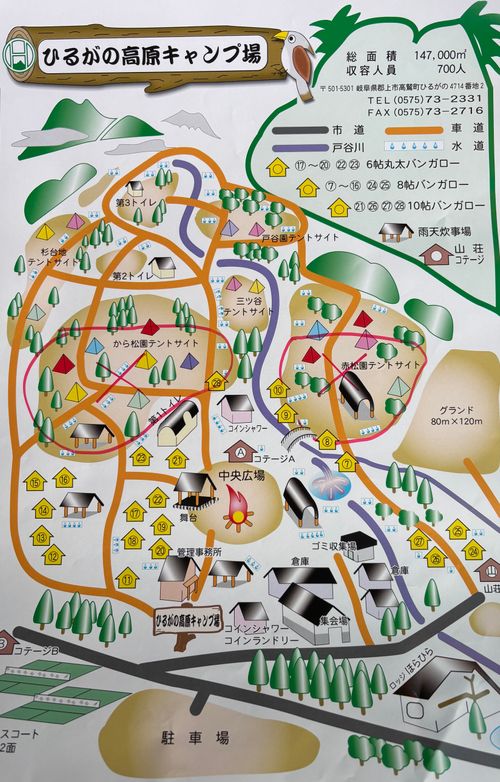 ひるがの高原キャンプ場
総面積 147,000㎡
収容人員 700人
〒501-5301 岐阜県郡上市高鷲町ひるがの4714番地2
TEL(0575)73-2331
FAX(0575)73-2716
市道 車道
戸谷川 水道
⑰〜⑳ ㉒ ㉓ 6帖丸太バンガロー
⑦〜⑯ ㉔ ㉕ 8帖バンガロー
㉑ ㉖ ㉗ ㉘ 10帖バンガロー
雨天炊事場
山荘
コテージ
第3トイレ
戸谷園テントサイト
杉台地
テントサイト
第2トイレ
三ツ谷
テントサイト
から松園テントサイト
赤松園テントサイト
グランド
80m×120m
㉘
⑩
⑨
⑧
⑦
第1トイレ
コインシャワー
A
コテージA
㉓
㉑
中央広場
⑮
⑯
⑭
⑬
⑫
㉒
⑰
⑱
⑲
⑳
⑪
舞台
管理事務所
ゴミ収集場
倉庫
倉庫
㉕
㉗
㉔
㉖
山
山荘
ひるがの高原キャンプ場
コインシャワー
コインランドリー
集会場
B
コテージB
ロッジほらひら
スコート
2面
駐車場